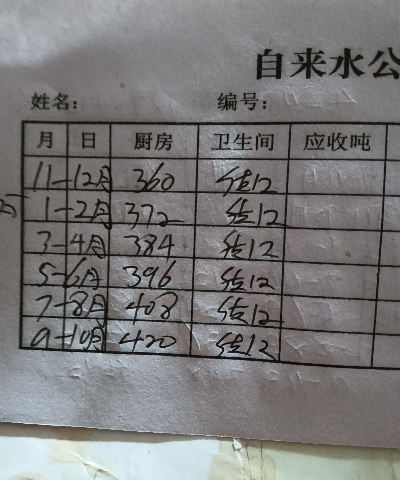 自来水公
姓名: 编号:
月 日 厨房 卫生间 应收吨
11-12月 360 估12
25 1-2月 372 估12
3-4月 384 估12
5-6月 396 估12
7-8月 408 估12
9-10月 420 估12